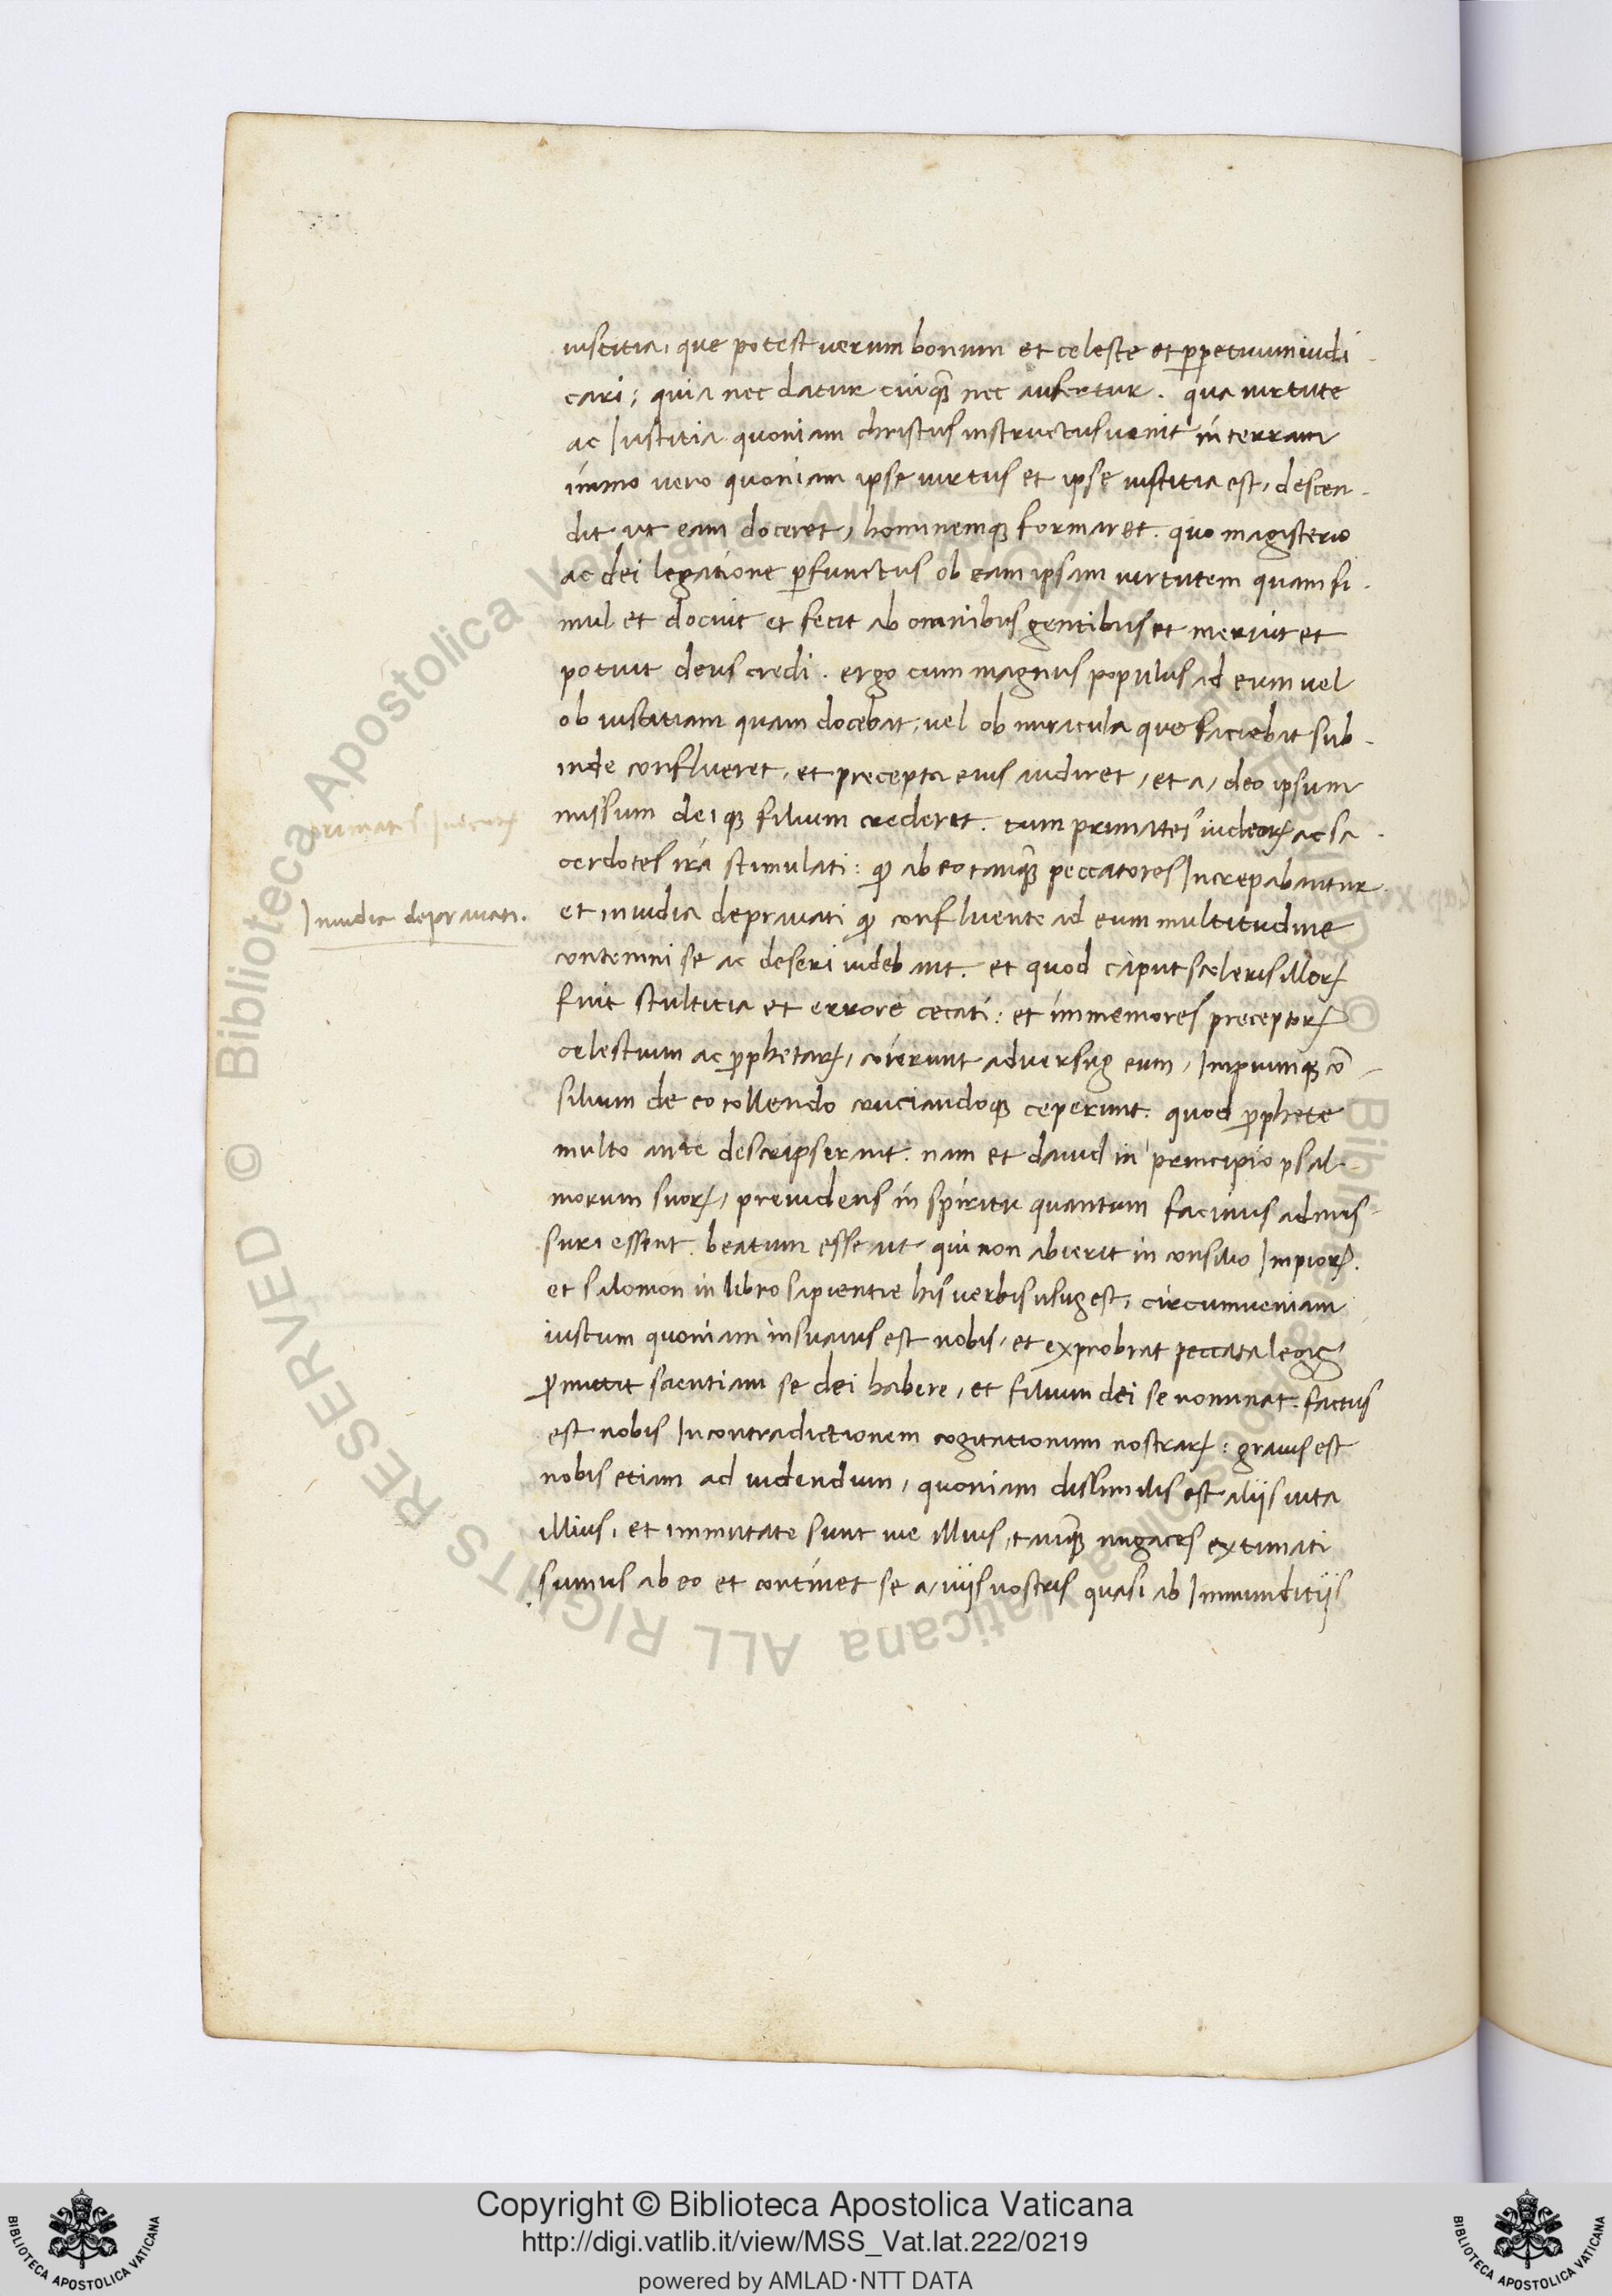 iustitia, que potest uerum bonum et celeste et ꝑpetuum iudi
cari; quia nec datur cuiqꝫ nec aufertur. qua uirtute
ac Iustitia quoniam christus instructus uenit in terram
immo uero quoniam ipse uirtus et ipse iustitia est, descen
dit ut eam doceret, hominemqꝫ formaret. quo magisterio
ac dei legatione ꝑfunctus ob eam ipsam uirtutem quam si
mul et docuit et fecit ab omnibus gentibus et meruit et
potuit deus credi. ergo cum magnus populus ad eum uel
ob iustitiam quam docebat, uel ob miracula que faciebat sub
inde conflueret, et precepta eius audiret, et a, deo ipsum
missum dei qꝫ filium crederet. tum primates iudeoꝝ ac sa
cerdotes ira stimulati: ꝙ ab eo tanqꝫ peccatores Increpabantur
Inuidia deprauati.
et inuidia deprauati ꝙ confluente ad eum multitudine
contemni se ac deseri uidebant. et quod caput sceleris illoꝝ
fuit stultitia et errore cecati: et immemores preceptoꝝ
celestium ac ꝓphetaꝝ, coierunt aduersuꝰ eum, Impiumqꝫ cō
silium de eo tollendo cruciandoqꝫ ceperunt. quod ꝓphete
multo ante descripserant. nam et dauid in principio psal
morum suoꝝ, preuidens in spiritu quantum facinus admis
suri essent. beatum esse ait qui non abierit in consilio Impioꝝ.
et salomon in libro sapientie his uerbis usuꝰ est, circumueniam
iustum quoniam insuauis est nobis, et exprobrat peccata legis
ꝓmittit scientiam se dei habere, et filium dei se nominat. factus
est nobis In contradictionem cogitationum nostraꝝ: grauis est
nobis etiam ad uidendum, quoniam dissimilis est aliis uita
illius, et immutate sunt uie illius, tanqꝫ nugaces extimati
sumus ab eo et continet se a, uiis nostris quasi ab Immunditiis
Copyright © Biblioteca Apostolica Vaticana
http://digi.vatlib.it/view/MSS_Vat.lat.222/0219
powered by AMLAD·NTT DATA
BIBLIOTECA APOSTOLICA VATICANA
BIBLIOTECA APOSTOLICA VATICANA